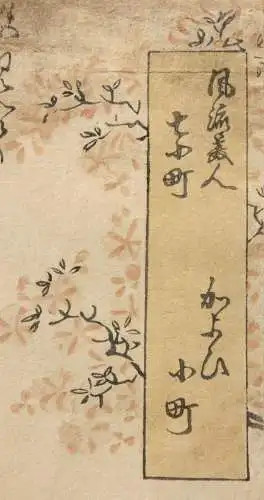 風流美人
七小町
かよひ
小町